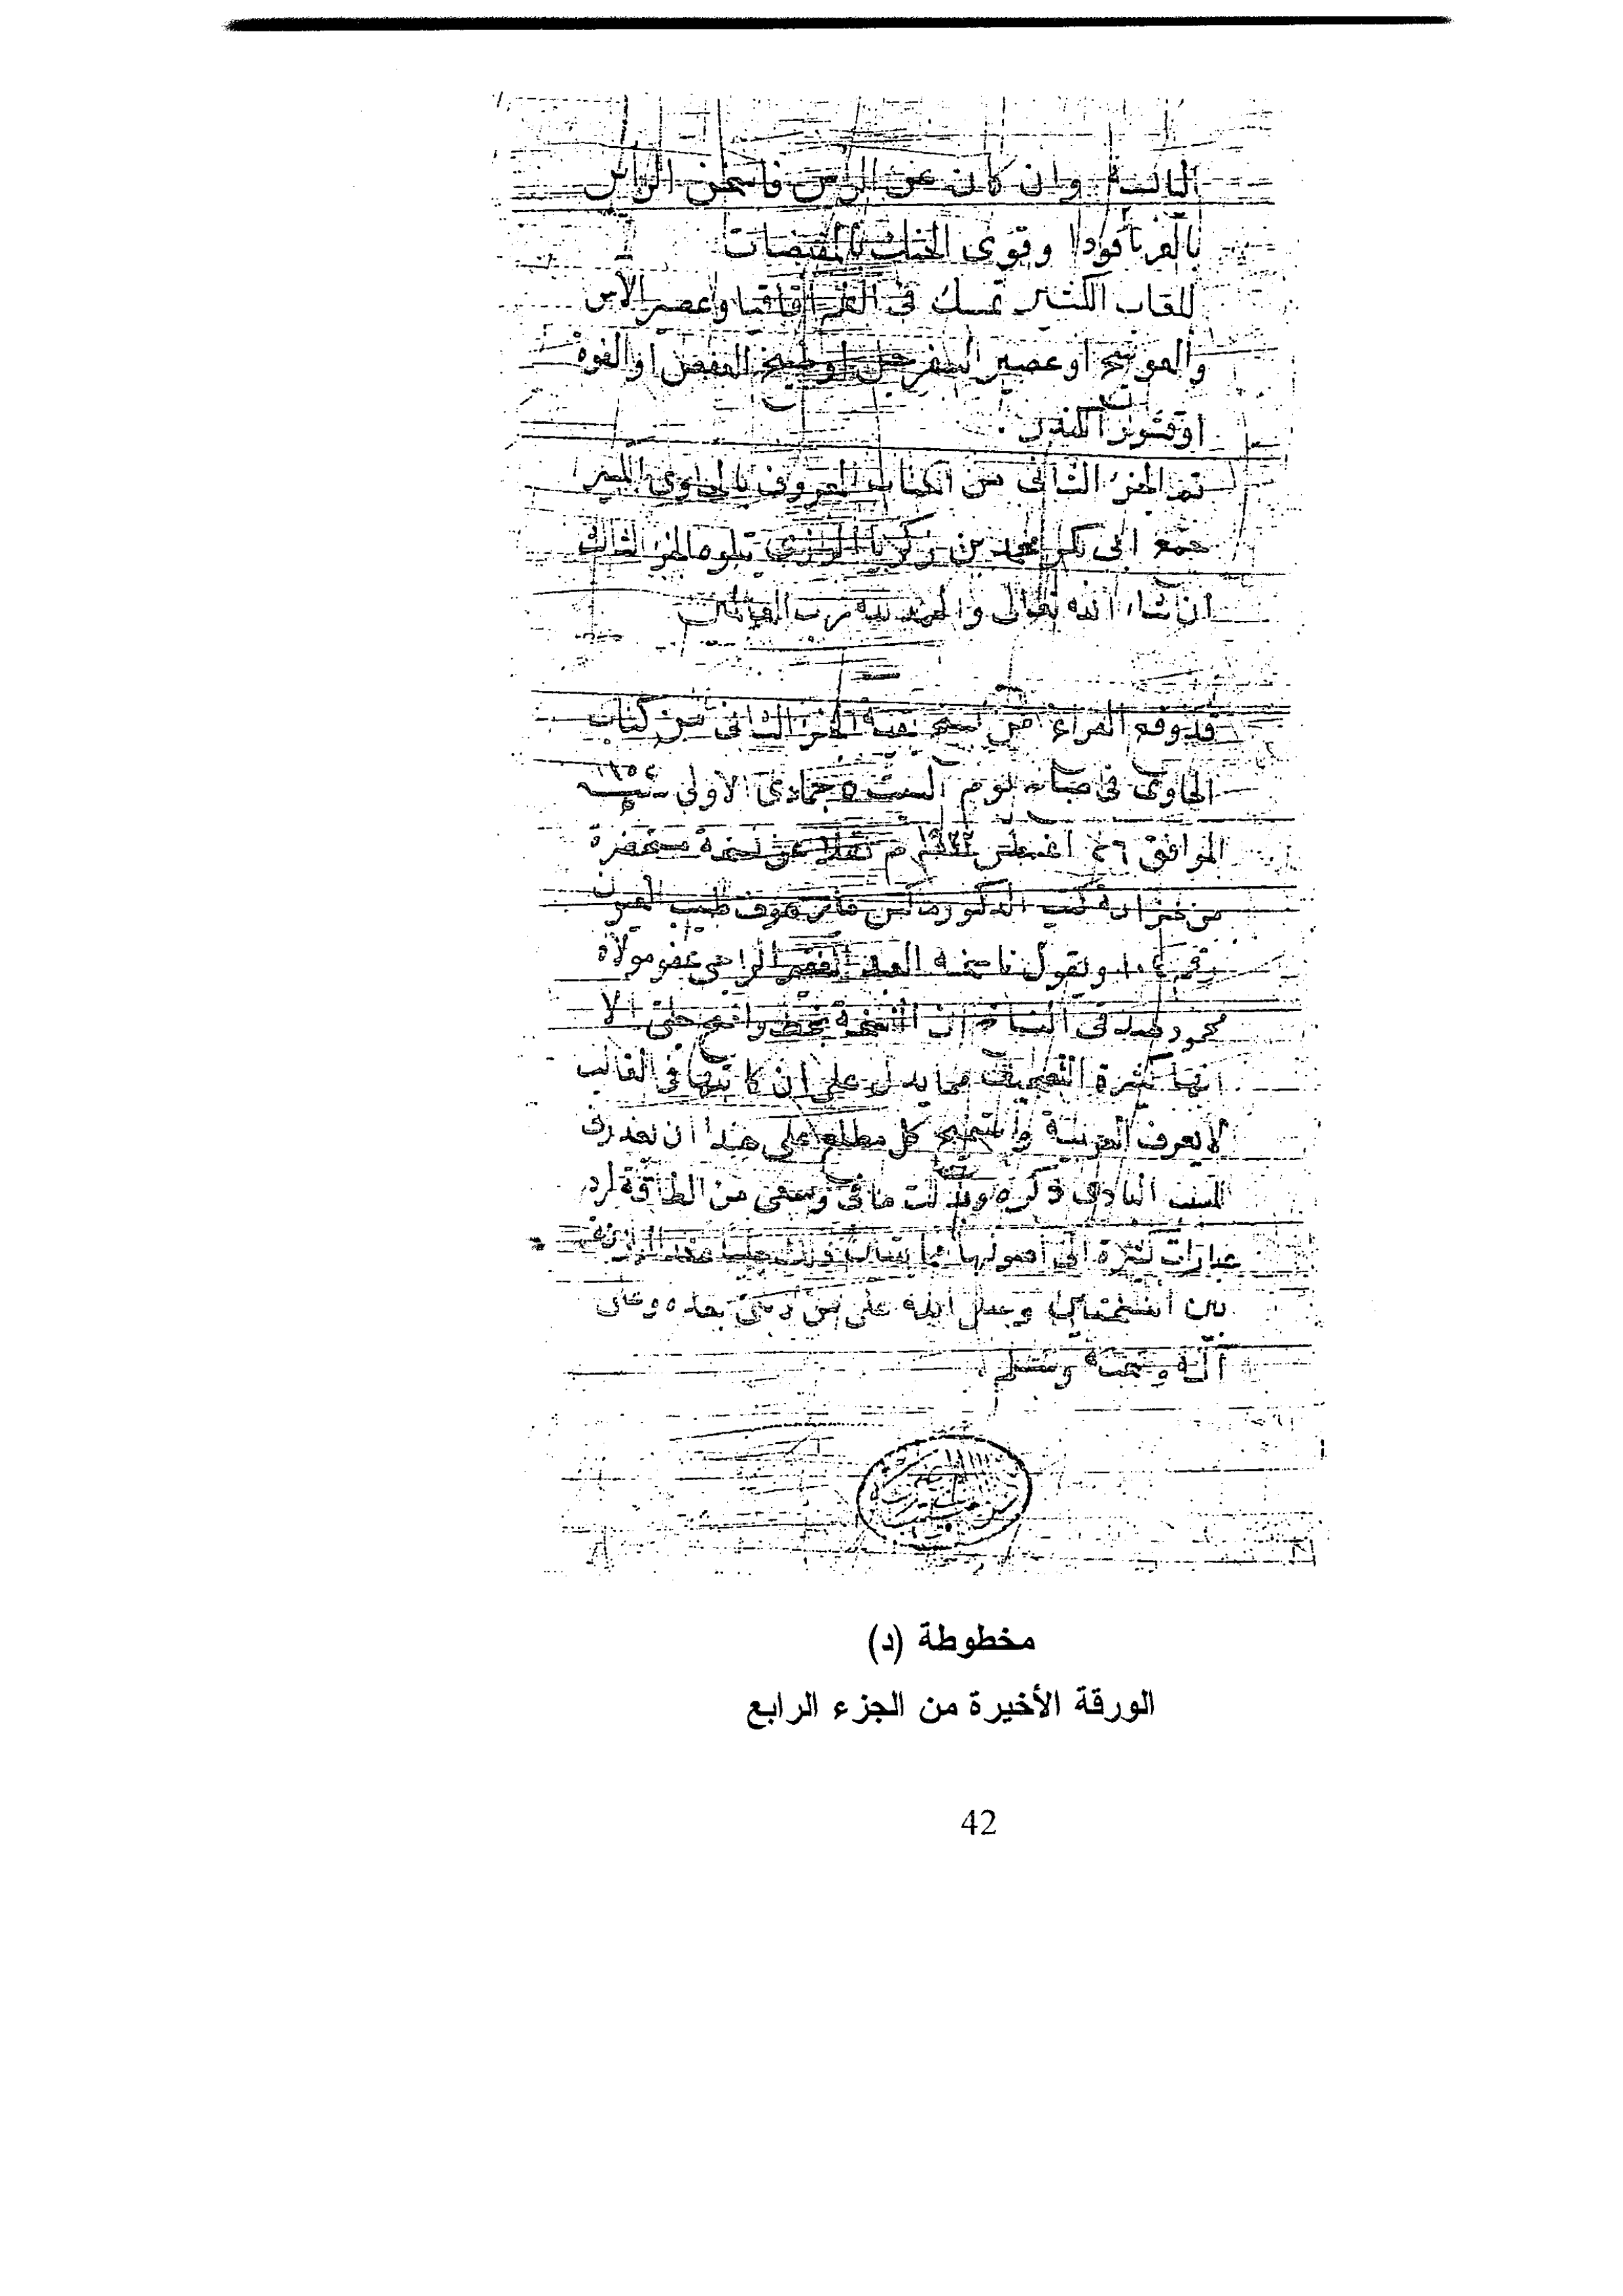 وان كان عن الراس فاسخن الراس
وقوى الحنك بالمقبضات
للعاب الكثير تمسك فى الفم اقاقيا وعصير الآس
والعوسج او عصير السفرجل او طبيخ العفص او الفوة
او قشور الكندر .
تم الجزء الثانى من الكتاب المعروف بالحاوى
جمع ابى بكر محمد بن زكريا الرازى يتلوه الجزء الثالث
ان شاء الله تعالى والحمد لله رب العالمين
قد وقع الفراغ من نسخ بقية الجزء الثانى من كتاب
الحاوى فى يوم السبت ٥ جمادى الاولى سنة
الموافق ٢٦ اغسطس م نقلا عن نسخة مستحضرة
من خزانة كتب الدكتور ماكس مايرهوف طبيب العيون
ويقول ناسخه العبد الفقير الراجى عفو مولاه
محمود صدقى النساخ ان النسخة بخط واضح جلى الا
انها كثيرة التصحيف مما يدل على ان كاتبها فى الغالب
لا يعرف العربية كل مطلع على هذا ان يعذرنى
للسبب البادى ذكره وبذلت ما فى وسعى من الطاقة لرد
عبارات كثيرة الى اصولها
وصلى الله على من لا نبى بعده وعلى
آله وصحبه وسلم .
مخطوطة (د)
الورقة الأخيرة من الجزء الرابع
42